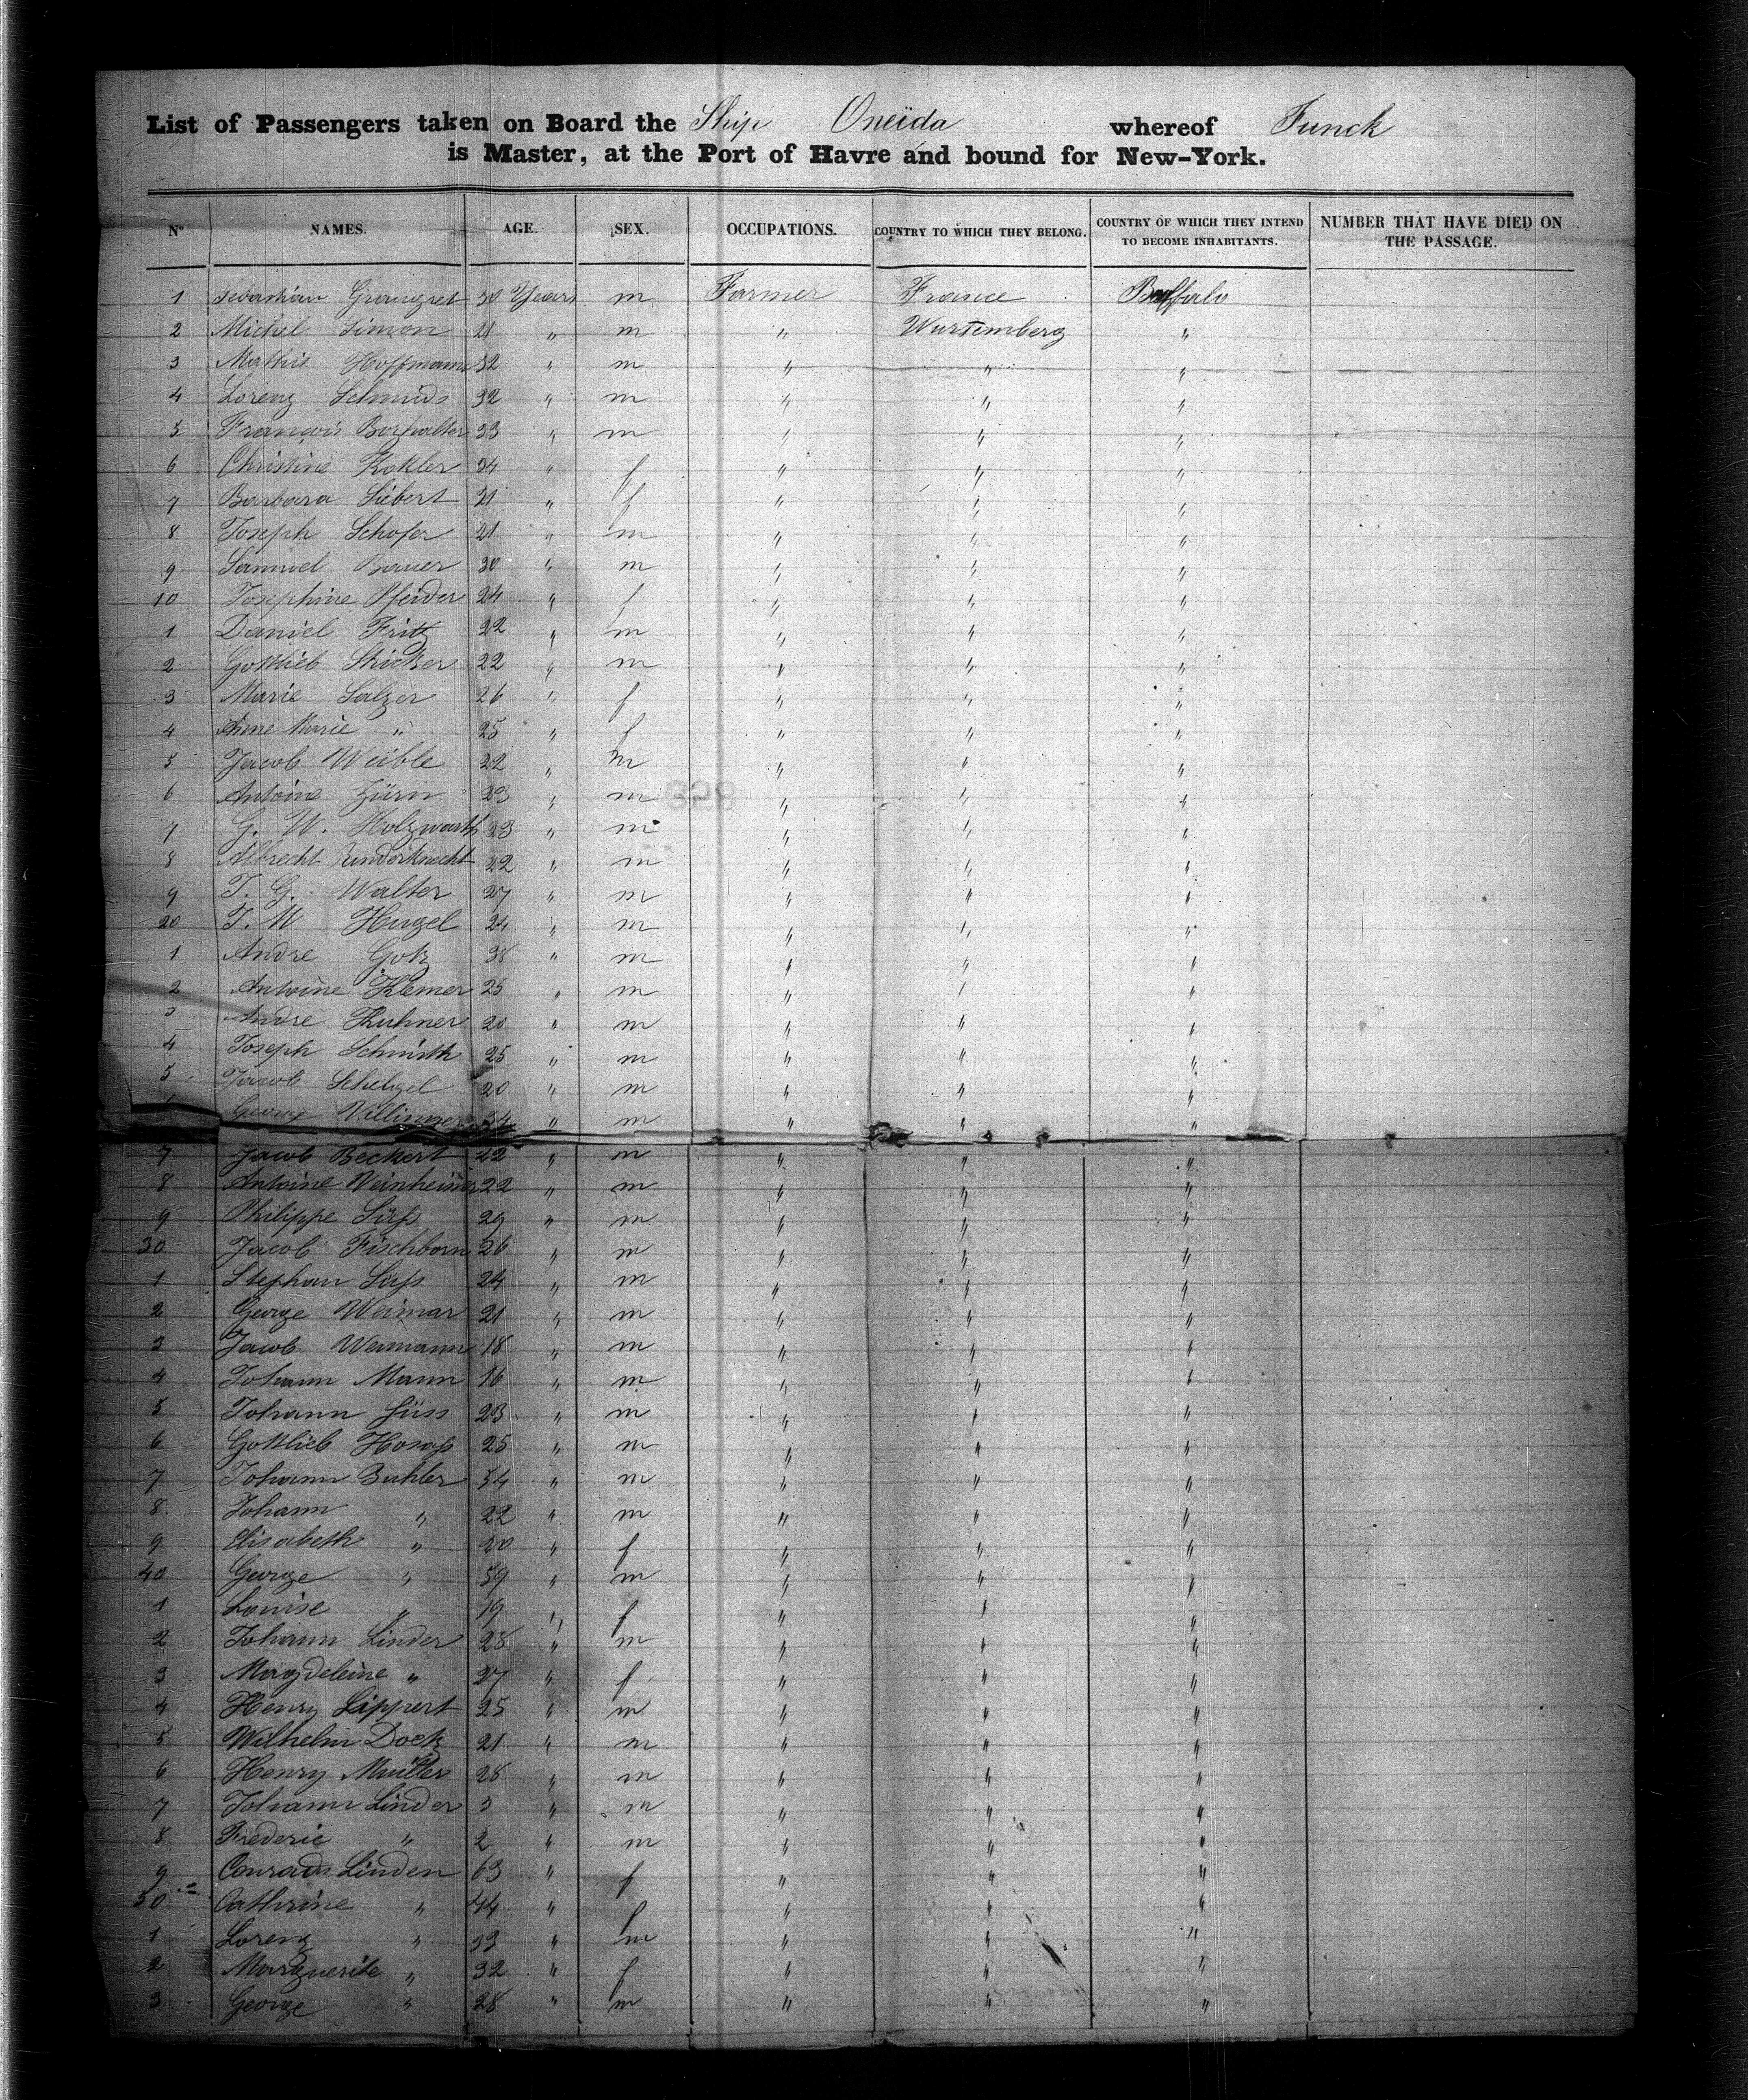 List of Passengers taken on Board the Ship Oneïda whereof Funck
is Master, at the Port of Havre and bound for New-York.
N° NAMES. AGE. SEX. OCCUPATIONS. COUNTRY TO WHICH THEY BELONG. COUNTRY OF WHICH THEY INTEND TO BECOME INHABITANTS. NUMBER THAT HAVE DIED ON THE PASSAGE.
1 Sebastian 30 Years m Farmer France Buffalo
2 Michel Simon 21 " m " Wurtemberg "
3 Mathis Hoffmann 32 " m " " "
4 Lorenz Schmids 32 " m " " "
5 François 33 " m " " "
6 Christine Kokler 24 " f " " "
7 Barbara Siebert 21 " f " " "
8 Joseph Schofer 21 " m " " "
9 Samuel Bauer 30 " m " " "
10 Josephine Pfeider 24 " f " " "
1 Daniel Fritz 22 " m " " "
2 Gottlieb Stricker 22 " m " " "
3 Marie Salzer 26 " f " " "
4 Anne Marie " 25 " f " " "
5 Jacob Weible 22 " m " " "
6 Antoine Zürn 23 " m " " "
7 G. W. Holzwarth 23 " m " " "
8 Albrecht Rinderknecht 22 " m " " "
9 J. G. Walter 27 " m " " "
20 J. M Hugel 24 " m " " "
1 Andre Gotz 38 " m " " "
2 Antoine Klemer 25 " m " " "
3 Andre Kuhner 20 " m " " "
4 Joseph 25 " m " " "
5 Jacob 20 " m " " "
George Villinger 34 " m " " "
7 Jacob Beckert 42 " m " " "
8 Antoine Weinheimer 22 " m " " "
9 Philippe Süss 29 " m " " "
30 Jacob Fischborn 26 " m " " "
1 Stephan Süss 24 " m " " "
2 George Weimar 21 " m " " "
3 Jacob Weimann 18 " m " " "
4 Johann Mann 16 " m " " "
5 Johann Süss 23 " m " " "
6 Gottlieb 25 " m " " "
7 Johann Buhler 54 " m " " "
8 Johann " 22 " m " " "
9 Elisabeth " 20 " f " " "
40 George " 59 " m " " "
1 Louise " 19 " f " " "
2 Johann Linder 28 " m " " "
3 Magdeleine " 27 " f " " "
4 Henry Lippert 25 " m " " "
5 Wilhelm Dock 21 " m " " "
6 Henry Muller 28 " m " " "
7 Johann Linder 3 " m " " "
8 Frederic " 2 " m " " "
9 Linden 63 " f " " "
50 Cathrine " 44 " f " " "
1 Lorenz " 33 " m " " "
2 Marguerite " 32 " f " " "
3 George " 28 " m " " "